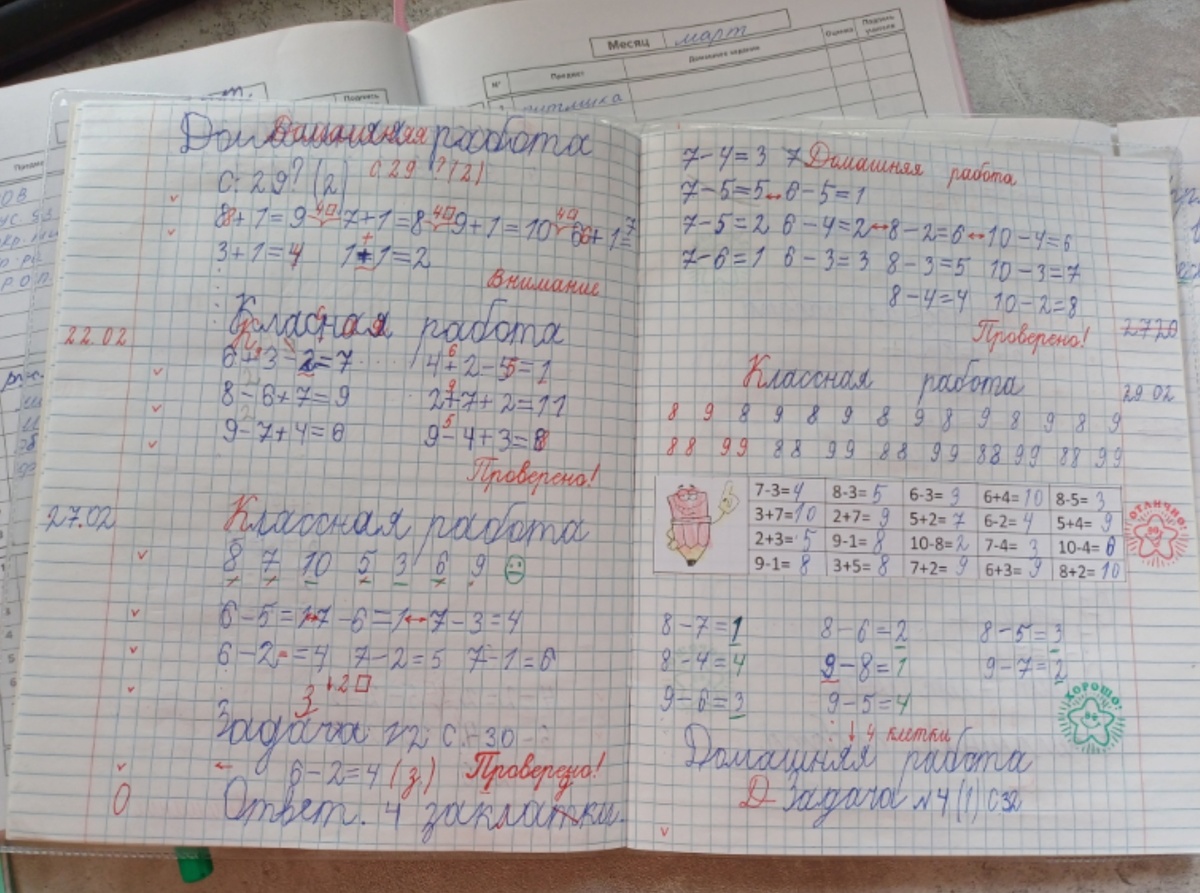 Месяц март
№ Предмет Домашнее задание Оценка Подпись учителя
Домашняя работа
Домашняя
с. 29? (2) с 29 ? (2)
8+1=9 4 7+1=8 4 9+1=10 4 6+1=7
3+1=4 1+1=2
Внимание
Классная работа
22.02
6+3-2=7 4+2-5=1
8-6+7=9 2+7+2=11
9-7+4=6 9-4+3=8
Проверено!
27.02 Классная работа
8 7 10 5 3 6 9
6-5=1 7-6=1 7-3=4
6-2=4 7-2=5 7-1=6
З ↓2
Задача №2 с. 30
6-2=4 (з.) Проверено!
Ответ. 4 закладки.
7-4=3 7 Домашняя работа
7-5=5 6-5=1
7-5=2 6-4=2 8-2=6 10-4=6
7-6=1 6-3=3 8-3=5 10-3=7
8-4=4 10-2=8
Проверено!
Классная работа 29 02
8 9 8 9 8 9 8 9 8 9 8 9 8 9
88 99 88 99 88 99 88 99 88 99
7-3=4 8-3=5 6-3=3 6+4=10 8-5=3
3+7=10 2+7=9 5+2=7 6-2=4 5+4=9
2+3=5 9-1=8 10-8=2 7-4=3 10-4=6
9-1=8 3+5=8 7+2=9 6+3=9 8+2=10
ОТЛИЧНО!
8-7=1 8-6=2 8-5=3
8-4=4 9-8=1 9-7=2
9-6=3 9-5=4
ХОРОШО!
↓ 4 клетки
Домашняя работа
Задача №4 (1) с32